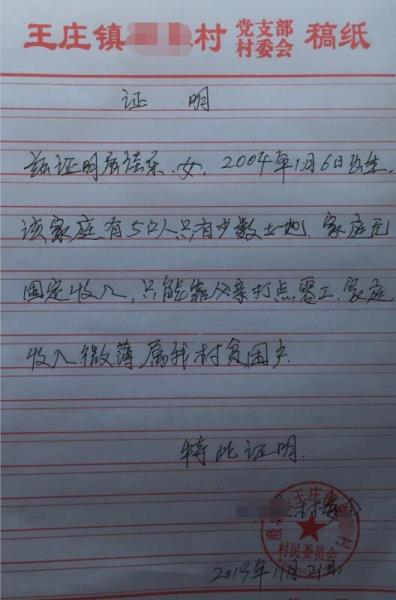 王庄镇 村 党支部 村委会 稿纸
证 明
兹证明 佳乐、女, 2004年1月6日出生,
该家庭有5口人只有少数土地,家庭无
固定收入,只能靠父亲打点零工,家庭
收入微薄属我村贫困户.
特此证明.
村委会
王庄 村
村民委员会
2019年11月21日.